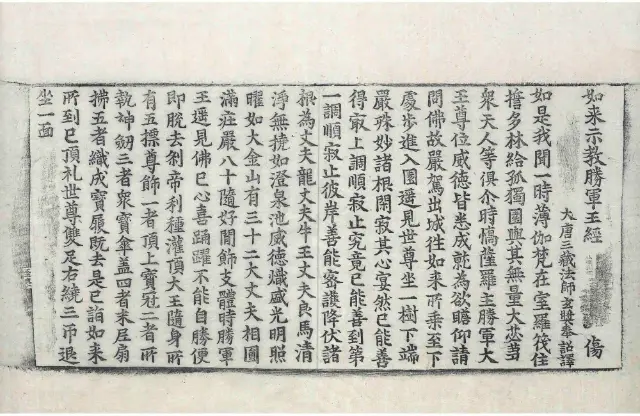 如来示教勝軍王經 傷
大唐三藏法師玄奘奉 詔譯
如是我聞一時薄伽梵在室羅筏住
誓多林給孤獨園與其無量大苾芻
衆天人等俱尒時憍薩羅主勝軍大
王尊位威德皆悉成就為欲瞻仰請
問佛故嚴駕出城往如来所乘至下
處步進入園遥見世尊坐一樹下端
嚴殊妙諸根閑寂其心宴然已能善
得㝡上調順寂止究竟已能善到第
一調順寂止彼岸善能審護降伏諸
根為丈夫龍丈夫牛王丈夫良馬清
淨無撓如澄泉池威德熾盛光明照
曜如大金山有三十二大丈夫相圓
滿莊嚴八十隨好間飾支體時勝軍
王遥見佛已心喜踊躍不能自勝便
即脫去剎帝利種灌頂大王隨身所
有五摽尊飾一者頂上寶冠二者所
執神劒三者衆寶傘盖四者末尼扇
拂五者織成寶屣旣去是已詣如来
所到已頂礼世尊雙足右繞三帀退
坐一面